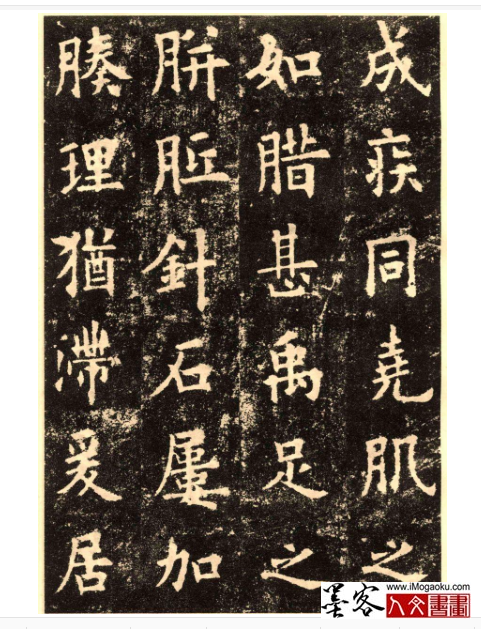 成疾同堯肌之
如腊甚禹足之
胼胝針石屢加
腠理猶滯爰居
墨客
www.iMogaoku.com
人文書畫